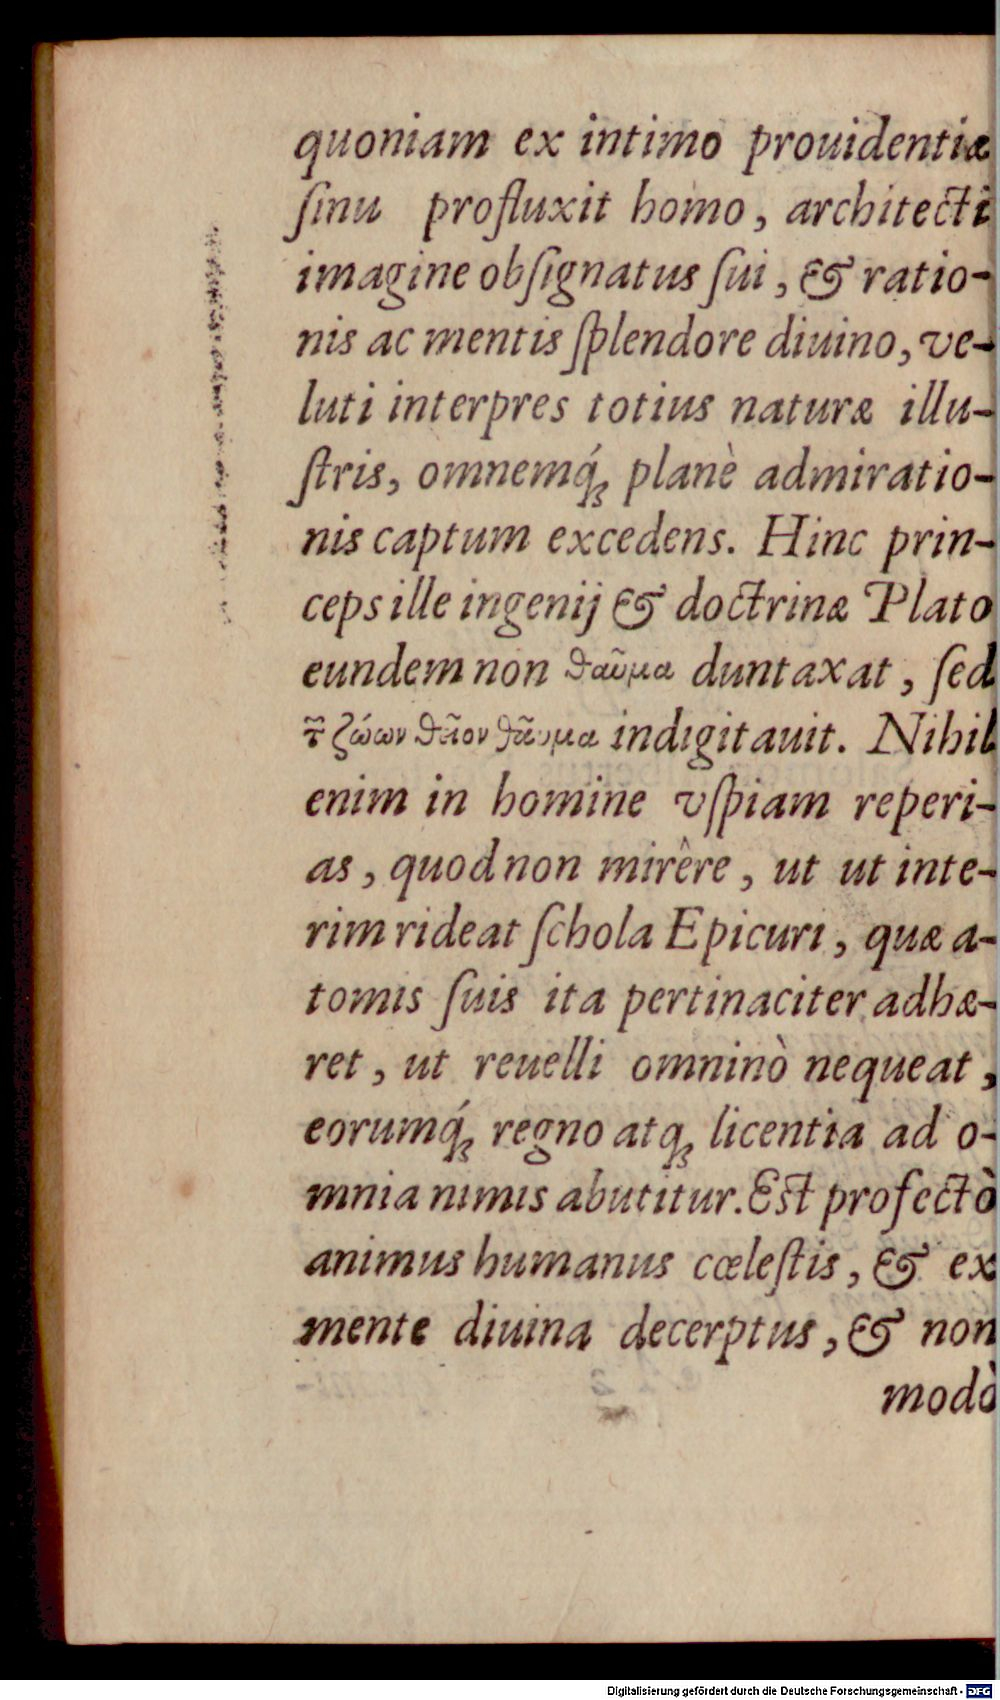 quoniam ex intimo prouidentiæ
ſinu profluxit homo, architecti
imagine obſignatus ſui, & ratio-
nis ac mentis ſplendore diuino, ve-
luti interpres totius naturæ illu-
ſtris, omnemq́; planè admiratio-
nis captum excedens. Hinc prin-
ceps ille ingenij & doctrinæ Plato
eundem non θαῦμα duntaxat, ſed
τ̃ ζώων θεῖον θαῦμα indigitauit. Nihil
enim in homine vſpiam reperi-
as, quod non mirêre, ut ut inte-
rim rideat ſchola Epicuri, quæ a-
tomis ſuis ita pertinaciter adhæ-
ret, ut reuelli omninò nequeat,
eorumq́; regno atq; licentia ad o-
mnia nimis abutitur. Est profectò
animus humanus cœleſtis, & ex
mente diuina decerptus, & non
modò
Digitalisierung gefördert durch die Deutsche Forschungsgemeinschaft - DFG